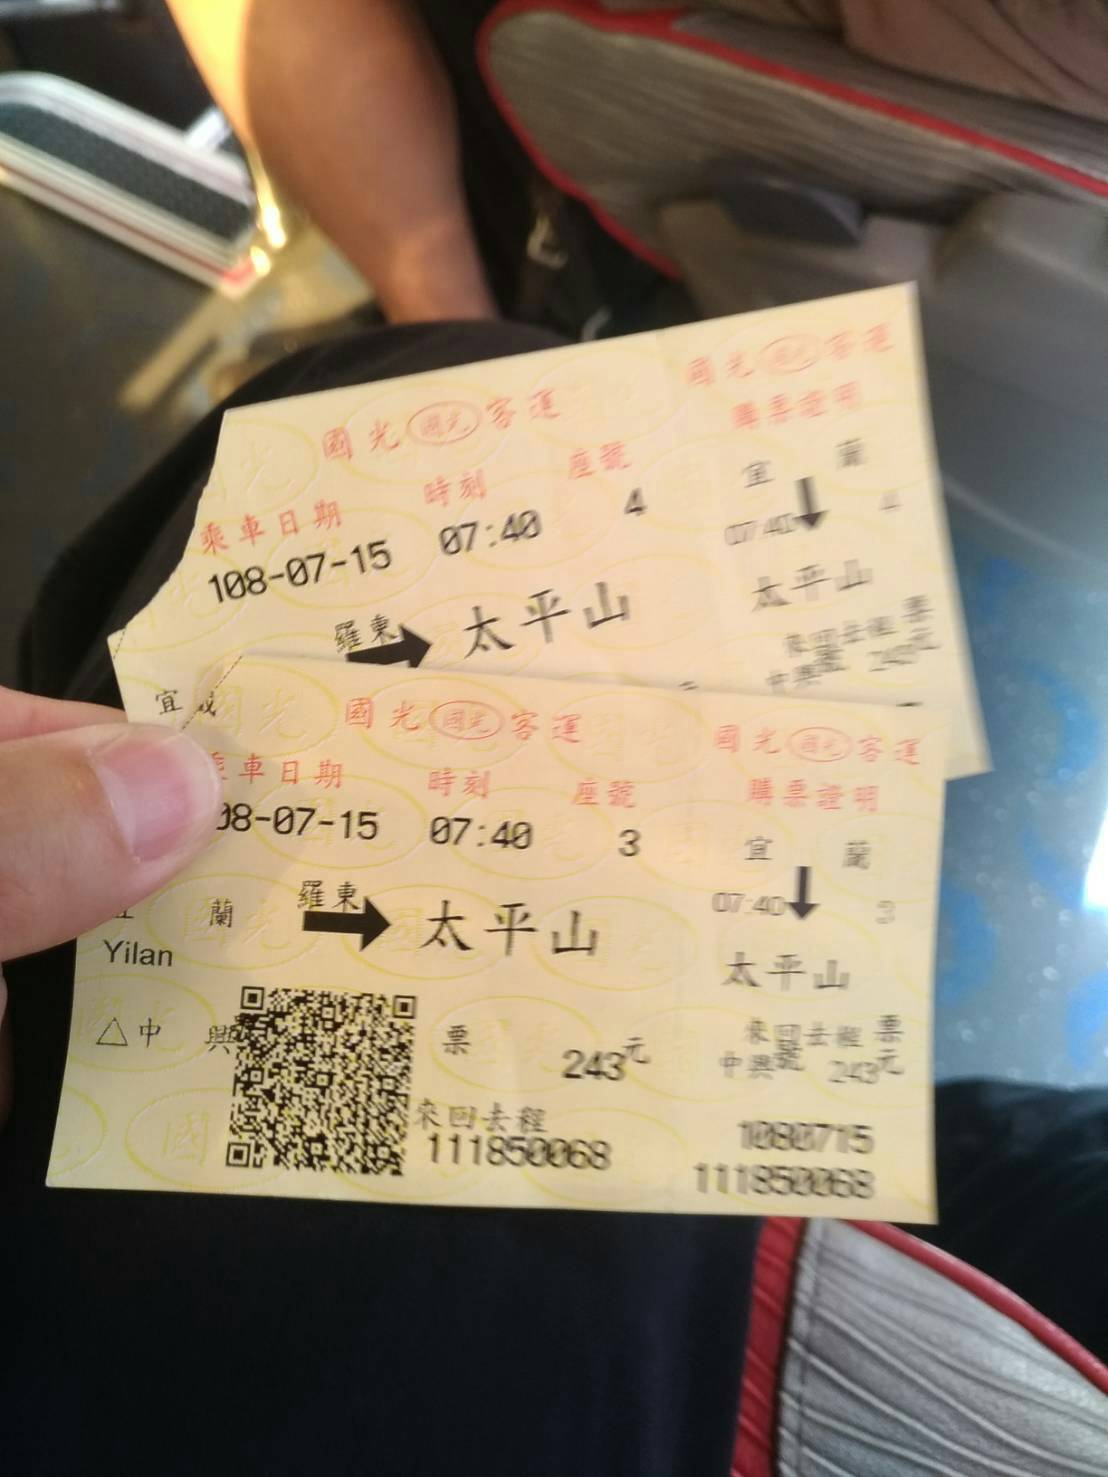 國光 國光 客運
國光 國光 客運
購票證明
乘車日期 時刻 座號
108-07-15 07:40 4
宜蘭
07:40 4
羅東 太平山
太平山
來回去程票
中興號 243元
宜
國光 國光 客運
國光 國光 客運
購票證明
車日期 時刻 座號
08-07-15 07:40 3
宜蘭
07:40 3
蘭 羅東 太平山
Yilan
太平山
△中興 票 243元
來回去程票
中興號 243元
來回去程
111850068
1080715
111850068